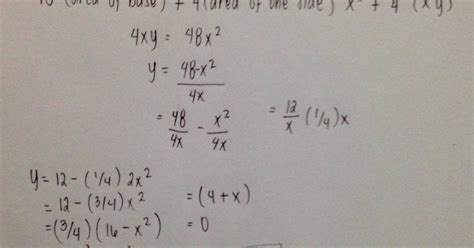 (area of base) + 4 (area of one side) x² + 4 (xy)
4xy = 48x²
y = 48-x² / 4x
= 48/4x - x²/4x = 12/x (1/4)x
y = 12 - (1/4) 2x²
= 12 - (3/4) x² = (4 + x)
= (3/4) (16 - x²) = 0